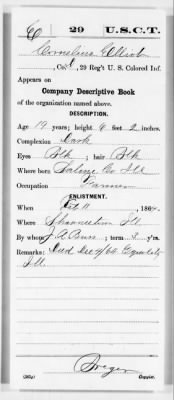 E | 29 | U.S.C.T.
Cornelius Elliott
, Co. , 29 Reg't U. S. Colored Inf.
Appears on
Company Descriptive Book
of the organization named above.
DESCRIPTION.
Age 19 years; height 6 feet 2 inches.
Complexion Dark
Eyes Blk ; hair Blk
Where born Saline Co Ill
Occupation Farmer
ENLISTMENT.
When 11 , 186 .
Where Shawneetown Ill
By whom J. A. ; term 3 y'rs.
Remarks: Died Dec
Ill
Copyist.